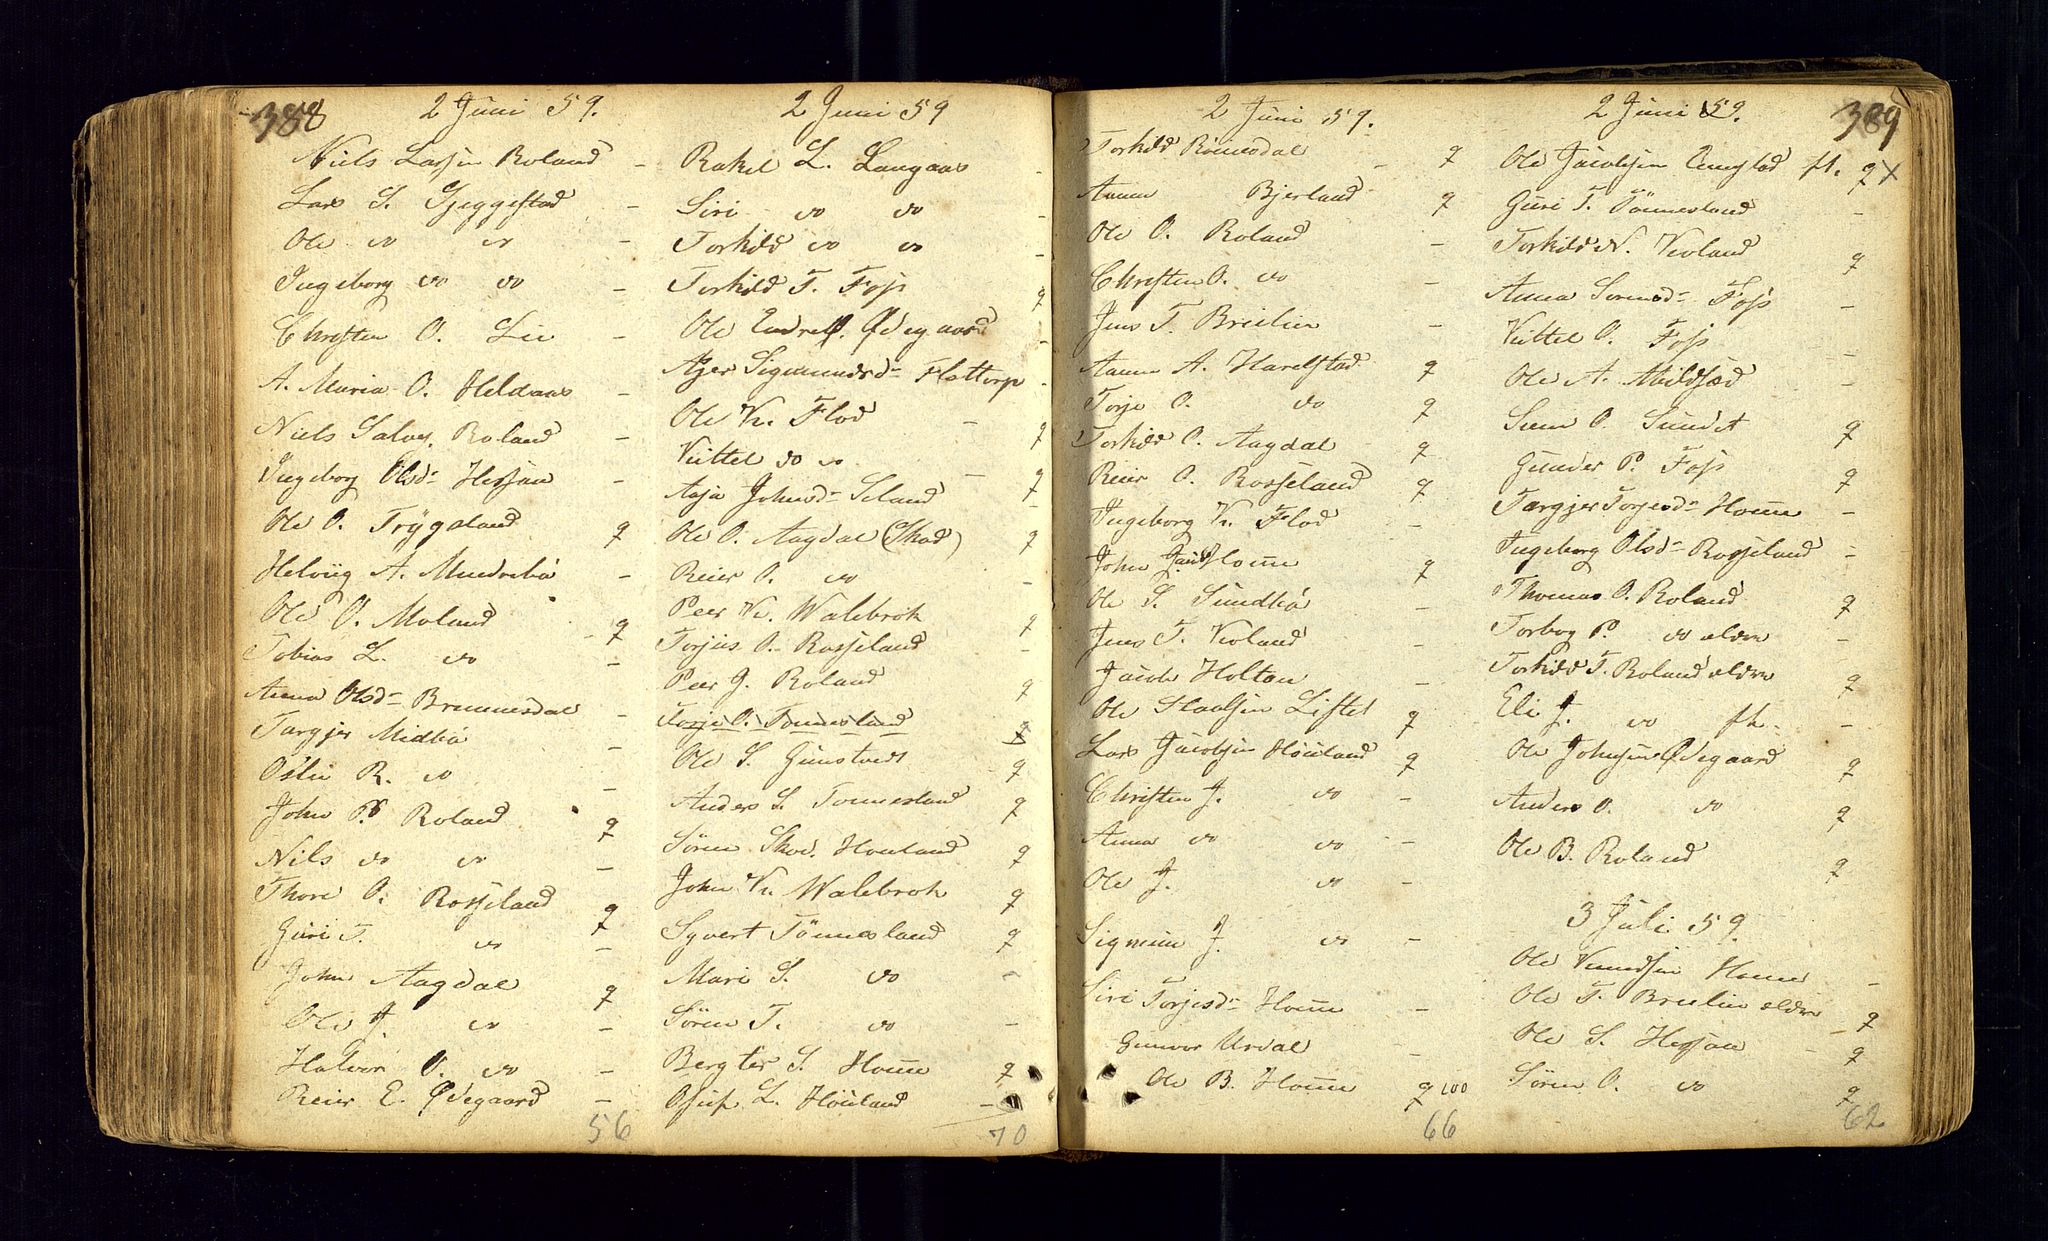 388
2 Juni 59.
Niels Larsen Roland -
Lars S. Gjeggestad -
Ole do do -
Ingeborg do do -
Christen O. Lie -
A. Maria O. Heldaas -
Niels Salvg. Roland -
Ingeborg Olsd- Hessaa -
Ole O. Trygsland q
Helvig A. -
Ole O. Moland q
Tobias L. do -
Anna Olsd- Brunnesdal -
Targjer Midbø -
Oslu R. do -
John P. Roland q
Nils do do -
Thore O. Rosseland q
Guri T. do -
John Aagdal q
Ole J. do -
Halvor O. do -
Reier E. Ødegaard -
56
2 Juni 59
Rakel L. Langaas -
Siri do do -
Torkild do do -
Torkild T. Foss q
Ole Endre Ødegaard -
Sigmundsd- Flottorp -
Ole Kn. Flod - q
Kittel do do - q
Asja Johnsd- Seland -
Ole O. Aagdal (Skad) q
Reier O. do -
Peer Kn. Walebrok q
Torjus O. Rosseland -
Peer J. Roland q
Torje O. Tonnesland q
Ole S. Gunstvedt q
Anders S. Tonnesland q
Sören Houland q
John Kn. Walebrok q
Syvert Tönnesland q
Mari S. do -
Sören T. do -
Bergter S. Home q
L. Höiland -
70
2 Juni 59.
Torkild Römesdal - q
Anne Bjerland q
Ole O. Roland -
Christen O. do -
Jens T. Breilien -
Anne A. Harelstad q
Torje O. do q
Torkild O. Aagdal - q
Reier O. Rosseland q
Ingeborg Kn. Flod -
John Home q
Ole S. Sundbø -
Jens T. Vivland -
Jacob Holtan -
Ole Liftet q
Lars Jacobsen Höiland q
Christen J. do -
Anna do do -
Ole J. do -
Sigmun J. do -
Siri Torjesd- Home -
Gunvor Urdal -
Ole B. Home q 100
66
2 Juni 59.
389
Ole Jacobsen ft. q x
Guri T. Tönnesland -
Torkild N. Vivland q
Anna Sorensd- Foss -
Kittel O. Foss -
Ole A. -
Siem O. Sundet q
Gunder P. Foss q
Targjer Torjesd- Home -
Ingeborg Olsd- Rosseland -
Thomas O. Roland q
Torbog P. do eldre -
Torkild T. Roland eldre q
Eli J. do fh. -
Ole Johnsen Ødegaard q
Anders O. do q
Ole B. Roland q
3 Juli 59.
Ole Knudsen Home -
Ole T. Breilien eldre - q
Ole S. Hessaa - q
Sören O. do q
62